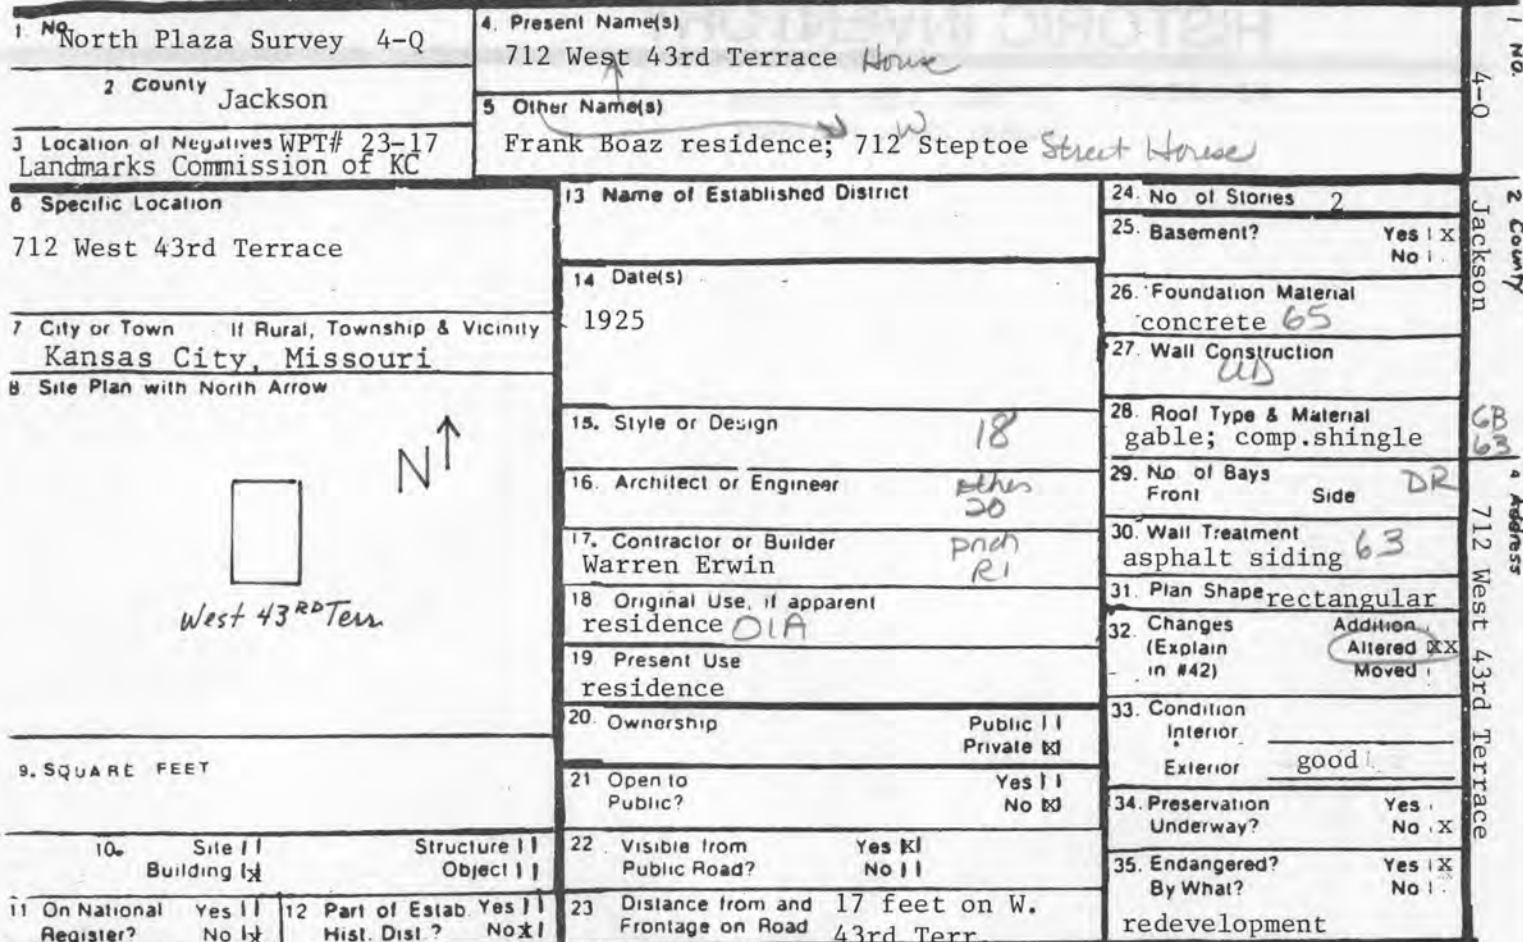 HISTORIC INVENTORY
1. No. North Plaza Survey 4-Q
2 County Jackson
3 Location of Negatives WPT# 23-17
Landmarks Commission of KC
4. Present Name(s)
712 West 43rd Terrace House
5 Other Name(s)
Frank Boaz residence; 712 W Steptoe Street House
6 Specific Location
712 West 43rd Terrace
7 City or Town If Rural, Township & Vicinity
Kansas City, Missouri
8 Site Plan with North Arrow
N
West 43RD Terr.
9. SQUARE FEET
10. Site | |
Structure | |
Building |X|
Object | |
11 On National Register? Yes | | No |X|
12 Part of Estab. Hist. Dist.? Yes | | No X |
13 Name of Established District
14 Date(s)
1925
15. Style or Design 18
16. Architect or Engineer other
20
17. Contractor or Builder prch
Warren Erwin R1
18 Original Use, if apparent
residence 01A
19 Present Use
residence
20. Ownership Public | |
Private |X|
21 Open to Public? Yes | |
No |X|
22 Visible from Public Road? Yes |X|
No | |
23 Distance from and Frontage on Road 17 feet on W.
43rd Terr.
24. No of Stories 2
25. Basement? Yes | X
No |
26. Foundation Material
concrete 65
27. Wall Construction
WD
28. Roof Type & Material
gable; comp.shingle
GB
63
29. No. of Bays DR
Front Side
30. Wall Treatment
asphalt siding 63
31. Plan Shape rectangular
32. Changes Addition
(Explain Altered XX
in #42) Moved
33. Condition
Interior
Exterior good
34. Preservation Underway? Yes
No X
35. Endangered? Yes | X
By What? No |
redevelopment
1 No.
4-Q
2 County
Jackson
4 Address
712 West 43rd Terrace